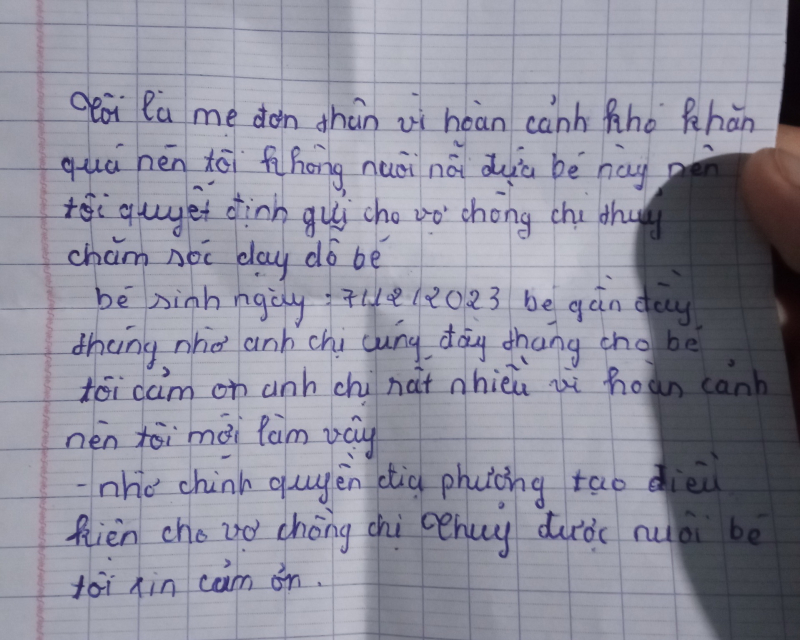 Tôi là mẹ đơn thân vì hoàn cảnh khó khăn
quá nên tôi không nuôi nỗi đứa bé này nên
tôi quyết định gửi cho vợ chồng chị thuỷ
chăm sóc dạy dỗ bé
bé sinh ngày : 7/12/2023 bé gần đầy
tháng nhờ anh chị cúng đầy tháng cho bé
tôi cảm ơn anh chị rất nhiều vì hoàn cảnh
nên tôi mới làm vậy
- nhờ chính quyền địa phương tạo điều
kiện cho vợ chồng chị Thuỷ được nuôi bé
tôi xin cảm ơn.